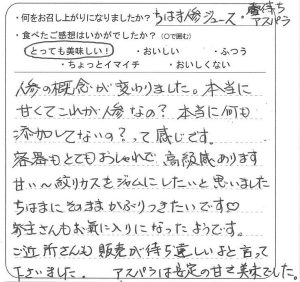 ・何をお召し上がりになりましたか？ ちはま人参ジュース・春待ちアスパラ
・食べたご感想はいかがでしたか？（○で囲む）
・とっても美味しい！ ・おいしい ・ふつう
・ちょっとイマイチ ・おいしくない
人参の概念が変わりました。本当に
甘くてこれが人参なの？本当に何も
添加してないの？って感じです。
容器もとてもおしゃれで高級感あります
甘い～絞りカスをジャムにしたいと思いました
ちはまにそのままかぶりつきたいです♡
お主さんもお気に入りになったようです。
ご近所さんも販売が待ち遠しいよと言って
下さいました。 アスパラは安定の甘さ美味でした。